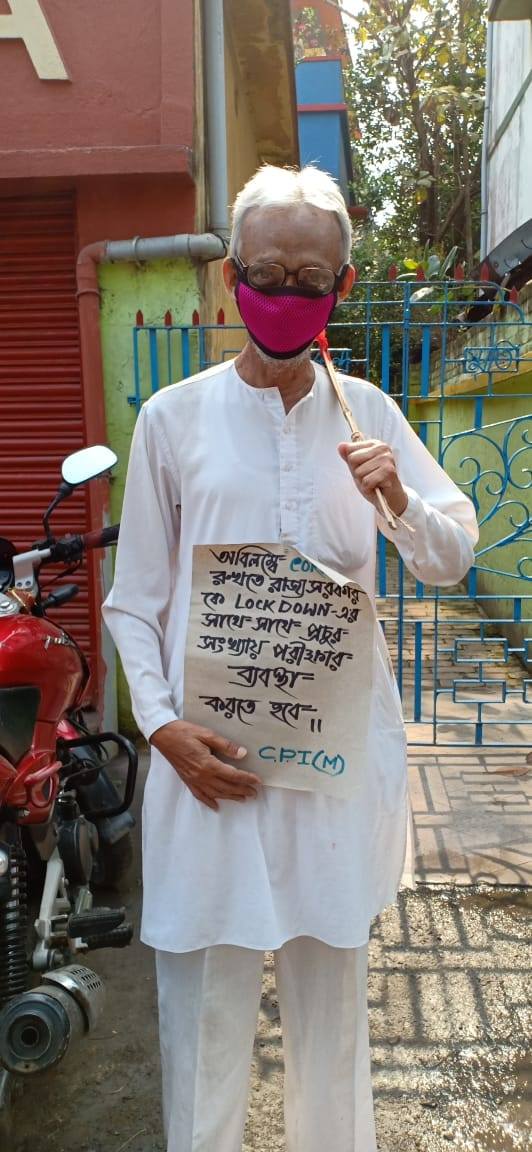 A
অবিলম্বে
রুখতে রাজ্য সরকার
কে LOCKDOWN-এর
সাথে-সাথে- প্রচুর-
সংখ্যায় পরীক্ষার-
ব্যবস্থা-
করতে হবে-॥
C.P.I(M)